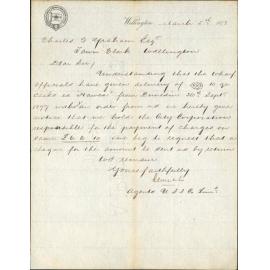 Wellington March 5th 189
Charles G Graham Esqr
Town Clerk Wellington
Dear Sir,
Understanding that the wharf
officials have given delivery of 10 qr
casks ex Hawea from Dunedin 30th Sept
1897 without an order from us we hereby give
notice that we hold the City Corporation
responsible for the payment of charges on
same £6.6.10 and beg to request that a
cheque for the amount be sent us by return
We remain
Yours faithfully
Agents U.S.S. Co Limd